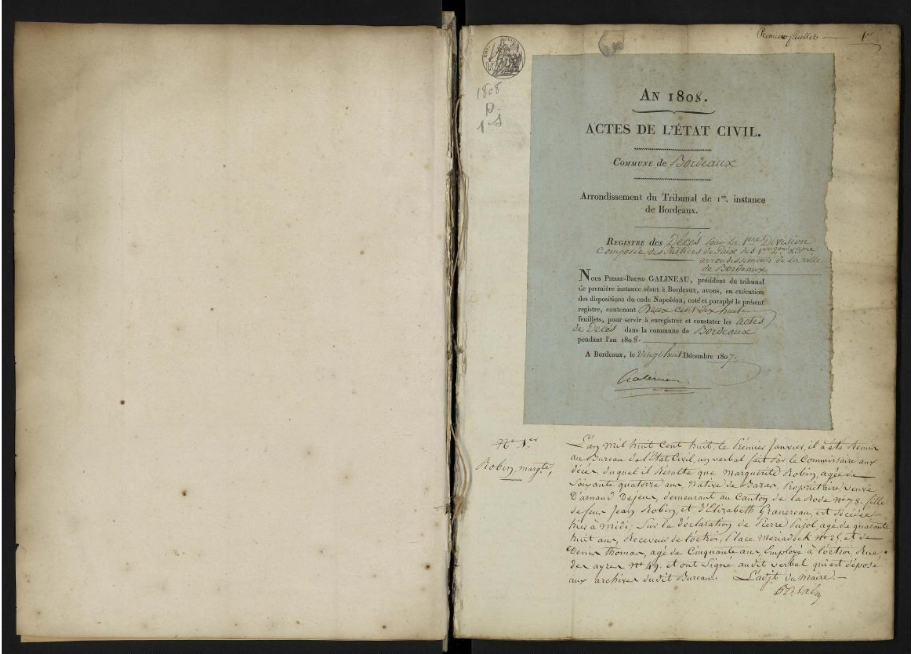 Premier feuillet 1er
1808
D.
1-S
AN 1808.
ACTES DE L'ÉTAT CIVIL.
COMMUNE de Bordeaux
Arrondissement du Tribunal de 1re. instance
de Bordeaux.
REGISTRE des Décès pour la 1ere Division
Composée des Justices de Paix des 1er
arrondissements de la ville
de Bordeaux
NOUS PIERRE-BRUNO GALINEAU, président du tribunal
de première instance séant à Bordeaux, avons, en exécution
des dispositions du code Napoléon, coté et paraphé le présent
registre, contenant Deux Cent dix huit
feuillets, pour servir à enregistrer et constater les actes
de Décès dans la commune de Bordeaux
pendant l'an 1808.
A Bordeaux, le vingt huit Décembre 1807.
Galineau
No 1er
Robin, margte,
L'an mil huit Cent huit, le Premier Janvier, il a été Remis
au Bureau de l'Etat Civil, un verbal fait par le Commissaire aux
décès duquel il Résulte que Marguerite Robin, agée de
Soixante quatorze ans, Native de Barsac, Propriétaire, veuve
D'arnaud Dejean, demeurant au Canton de la Rode No 78. fille
de feu Jean Robin, et d'Elizabeth Granereau, est décédée
hier à Midi. Sur la déclaration de Pierre Pujol agé de quarante
huit ans, Receveur de l'octroi, Place No 25, et de
Denis Thomas, agé de Cinquante ans, Employé à l'octroi, Rue
des ayres No 49. et ont Signé audit verbal qui est déposé
aux archives dudit Bureau. L'adjt du Maire.